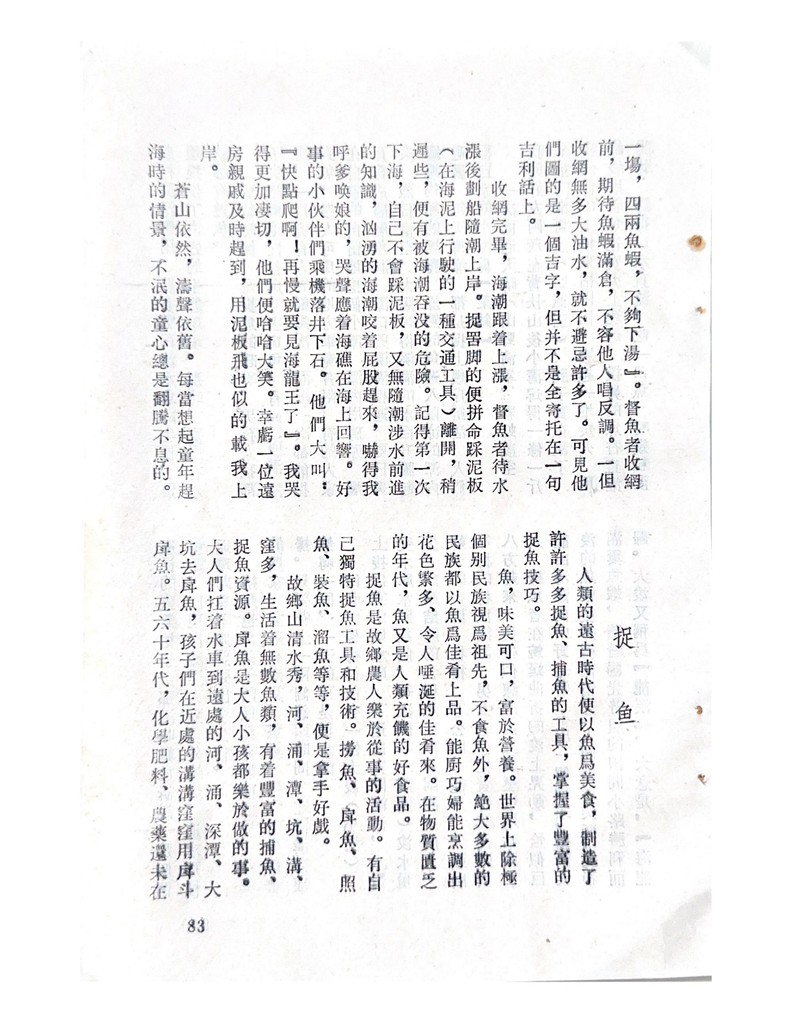 一塲，四兩魚蝦，不夠下湯』。督魚者收網
前，期待魚蝦滿倉，不容他人唱反調。一但
收網無多大油水，就不避忌許多了。可見他
們圖的是一個吉字，但并不是全寄托在一句
吉利話上。
收網完畢，海潮跟着上漲，督魚者待水
漲後劃船隨潮上岸。捉罟脚的便拼命踩泥板
（在海泥上行駛的一種交通工具）離開，稍
遲些，便有被海潮吞没的危險。記得第一次
下海，自己不會踩泥板，又無隨潮涉水前進
的知識，汹湧的海潮咬着屁股趕來，嚇得我
呼爹喚娘的，哭聲應着海礁在海上回響。好
事的小伙伴們乘機落井下石。他們大叫：
『快點爬啊！再慢就要見海龍王了』。我哭
得更加凄切，他們便哈哈大笑。幸虧一位遠
房親戚及時趕到，用泥板飛也似的載我上
岸。
蒼山依然，濤聲依舊。每當想起童年趕
海時的情景，不泯的童心總是翻騰不息的。
捉鱼
人類的遠古時代便以魚爲美食，制造了
許許多多捉魚、捕魚的工具，掌握了豐富的
捉魚技巧。
魚，味美可口，富於營養。世界上除極
個别民族視爲祖先，不食魚外，絶大多數的
民族都以魚爲佳肴上品。能厨巧婦能烹調出
花色繁多、令人唾涎的佳肴來。在物質匱乏
的年代，魚又是人類充饑的好食品。
捉魚是故鄉農人樂於從事的活動。有自
己獨特捉魚工具和技術。撈魚、戽魚、照
魚、裝魚、溜魚等等，便是拿手好戲。
故鄉山清水秀，河、涌、潭、坑、溝、
窪多，生活着無數魚類，有着豐富的捕魚、
捉魚資源。戽魚是大人小孩都樂於做的事。
大人們扛着水車到遠處的河、涌、深潭、大
坑去戽魚，孩子們在近處的溝溝窪窪用戽斗
戽魚。五六十年代，化學肥料、農藥還未在
83